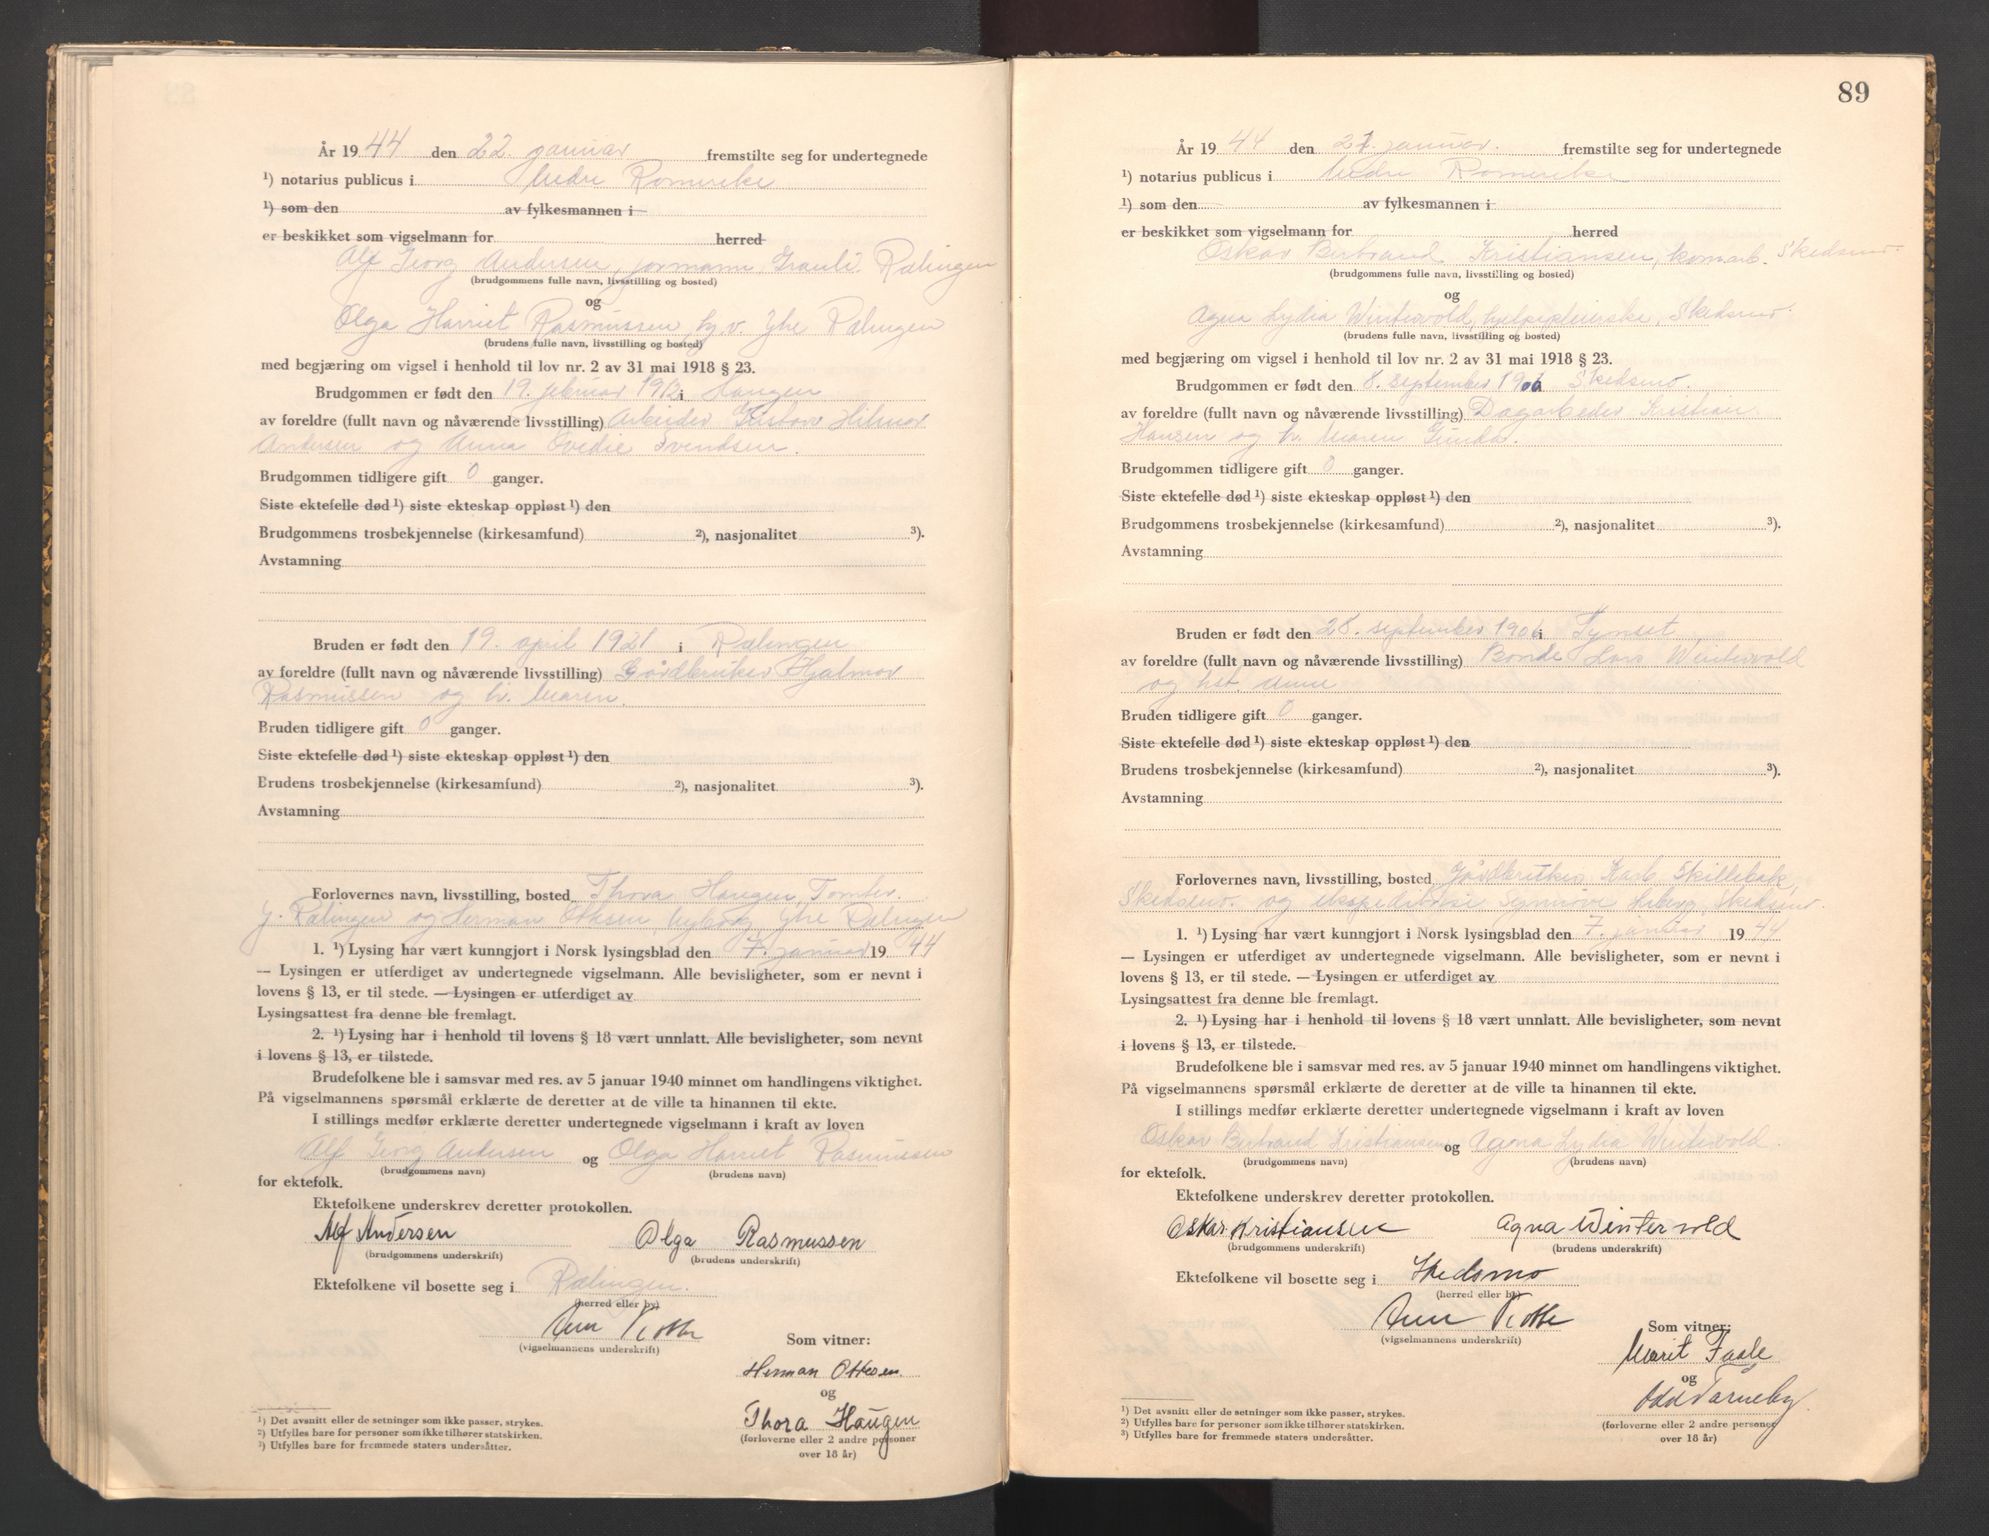 År 19 44 den 22. januar fremstilte seg for undertegnede
¹) notarius publicus i Nedre Romerike
¹) som den av fylkesmannen i
er beskikket som vigselmann for herred
Alf Georg Andersen, formann, Grauli. Rælingen
(brudgommens fulle navn, livsstilling og bosted)
og
Olga Harriet Rasmussen, hj.v. Yhe Rælingen
(brudens fulle navn, livsstilling og bosted)
med begjæring om vigsel i henhold til lov nr. 2 av 31 mai 1918 § 23.
Brudgommen er født den 19. februar 1912 i Haugen
av foreldre (fullt navn og nåværende livsstilling) Arbeider Gustav Hilmar
Andersen og Anna Ovedie Svendsen.
Brudgommen tidligere gift 0 ganger.
Siste ektefelle død ¹) siste ekteskap oppløst ¹) den
Brudgommens trosbekjennelse (kirkesamfund) ²), nasjonalitet ³).
Avstamning
Bruden er født den 19. april 1921 i Rælingen
av foreldre (fullt navn og nåværende livsstilling) Gårdbruker Hjalmar
Rasmussen og h. Maren.
Bruden tidligere gift 0 ganger.
Siste ektefelle død ¹) siste ekteskap oppløst ¹) den
Brudens trosbekjennelse (kirkesamfund) ²), nasjonalitet ³).
Avstamning
Forlovernes navn, livsstilling, bosted Thora Haugen, Tomter
Rælingen og Herman Ottesen, Yhe Rælingen
1. ¹) Lysing har vært kunngjort i Norsk lysingsblad den 7. januar 19 44
— Lysingen er utferdiget av undertegnede vigselmann. Alle bevisligheter, som er nevnt i
lovens § 13, er til stede. — Lysingen er utferdiget av
Lysingsattest fra denne ble fremlagt.
2. ¹) Lysing har i henhold til lovens § 18 vært unnlatt. Alle bevisligheter, som nevnt
i lovens § 13, er tilstede.
Brudefolkene ble i samsvar med res. av 5 januar 1940 minnet om handlingens viktighet.
På vigselmannens spørsmål erklærte de deretter at de ville ta hinannen til ekte.
I stillings medfør erklærte deretter undertegnede vigselmann i kraft av loven
Alf Georg Andersen og Olga Harriet Rasmussen
(brudgommens navn) (brudens navn)
for ektefolk.
Ektefolkene underskrev deretter protokollen.
Alf Andersen Olga Rasmussen
(brudgommens underskrift) (brudens underskrift)
Ektefolkene vil bosette seg i Rælingen.
(herred eller by)
(vigselmannens underskrift)
Som vitner:
Herman Ottesen
og
Thora Haugen
(forloverne eller 2 andre personer
over 18 år)
¹) Det avsnitt eller de setninger som ikke passer, strykes.
²) Utfylles bare for personer som ikke tilhører statskirken.
³) Utfylles bare for fremmede staters undersåtter.
89
År 19 44 den 27. januar. fremstilte seg for undertegnede
¹) notarius publicus i Nedre Romerike
¹) som den av fylkesmannen i
er beskikket som vigselmann for herred
Oskar Bertrand Kristiansen, komarb. Skedsmo.
(brudgommens fulle navn, livsstilling og bosted)
og
Agna Lydia Wintervold, hjelpepleierske, Skedsmo.
(brudens fulle navn, livsstilling og bosted)
med begjæring om vigsel i henhold til lov nr. 2 av 31 mai 1918 § 23.
Brudgommen er født den 8. september 1906 i Skedsmo.
av foreldre (fullt navn og nåværende livsstilling) Dagarbeder Kristian
Hansen og h. Maren Gunda.
Brudgommen tidligere gift 0 ganger.
Siste ektefelle død ¹) siste ekteskap oppløst ¹) den
Brudgommens trosbekjennelse (kirkesamfund) ²), nasjonalitet ³).
Avstamning
Bruden er født den 28. september 1906 i Tynset
av foreldre (fullt navn og nåværende livsstilling) Bonde Lars Wintervold
og hst. Anne
Bruden tidligere gift 0 ganger.
Siste ektefelle død ¹) siste ekteskap oppløst ¹) den
Brudens trosbekjennelse (kirkesamfund) ²), nasjonalitet ³).
Avstamning
Forlovernes navn, livsstilling, bosted Gårdbruker Karl Skillebek,
Skedsmo. og ekspeditrise Synnøve Arberg, Skedsmo.
1. ¹) Lysing har vært kunngjort i Norsk lysingsblad den 7. januar 19 44
— Lysingen er utferdiget av undertegnede vigselmann. Alle bevisligheter, som er nevnt i
lovens § 13, er til stede. — Lysingen er utferdiget av
Lysingsattest fra denne ble fremlagt.
2. ¹) Lysing har i henhold til lovens § 18 vært unnlatt. Alle bevisligheter, som nevnt
i lovens § 13, er tilstede.
Brudefolkene ble i samsvar med res. av 5 januar 1940 minnet om handlingens viktighet.
På vigselmannens spørsmål erklærte de deretter at de ville ta hinannen til ekte.
I stillings medfør erklærte deretter undertegnede vigselmann i kraft av loven
Oskar Bertrand Kristiansen og Agna Lydia Wintervold.
(brudgommens navn) (brudens navn)
for ektefolk.
Ektefolkene underskrev deretter protokollen.
Oskar Kristiansen Agna Wintervold
(brudgommens underskrift) (brudens underskrift)
Ektefolkene vil bosette seg i Skedsmo
(herred eller by)
(vigselmannens underskrift)
Som vitner:
Marit Faale
og
Odd Tarneby.
(forloverne eller 2 andre personer
over 18 år)
¹) Det avsnitt eller de setninger som ikke passer, strykes.
²) Utfylles bare for personer som ikke tilhører statskirken.
³) Utfylles bare for fremmede staters undersåtter.